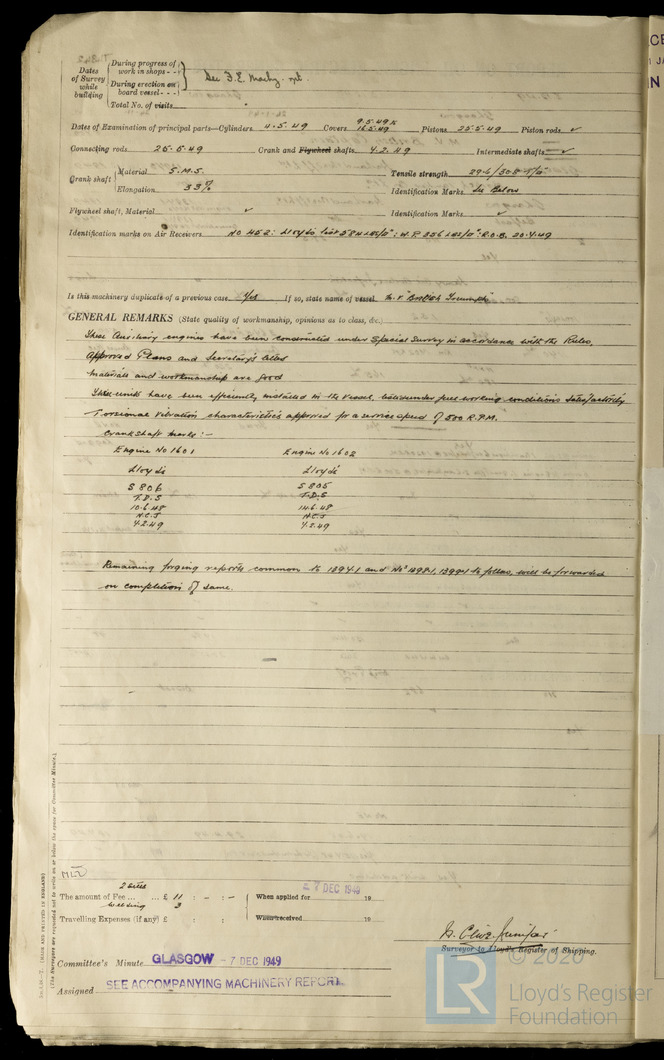 Dates of Survey while building
During progress of work in shops - -
During erection on board vessel - - -
See F.E. Machy. rpt.
Total No. of visits
Dates of Examination of principal parts—Cylinders 4.5.49 Covers 9.5.49 & 16.5.49 Pistons 25.5.49 Piston rods ✓
Connecting rods 25.5.49 Crank and Flywheel shafts 4.2.49 Intermediate shafts ✓
Crank shaft Material S.M.S. Tensile strength
Elongation 33% Identification Marks See Below
Flywheel shaft, Material ✓ Identification Marks ✓
Identification marks on Air Receivers No 452: Lloyds test 584 LBS/□": W.P. 356 LBS/□": R.O.B. 20.4.49
Is this machinery duplicate of a previous case Yes If so, state name of vessel M.V. "British
GENERAL REMARKS (State quality of workmanship, opinions as to class, &c.)
These Auxiliary engines have been constructed under Special Survey in accordance with the Rules,
Approved Plans and Secretary's letters
Materials and workmanship are good
These units have been efficiently installed in the vessel, tested under full working conditions satisfactorily
Torsional vibration characteristics approved for a service speed of 500 R.P.M.
Crankshaft marks :-
Engine No 1601 Engine No 1602
Lloyd's Lloyd's
S 806 S 805
T.D.S T.D.S
10.6.48 14.6.48
N.C.J N.C.J
4.2.49 4.2.49
Remaining forging reports common to 1394-1 and Nos 1398-1, 1399-1 to follow, will be forwarded
on completion of same.
2 sets
The amount of Fee ... ... £ 11 : - : - When applied for 27 DEC 1949 19
Welding 3
Travelling Expenses (if any) £ : : When received 19
Surveyor to Lloyd's Register of Shipping.
Committee's Minute GLASGOW - 7 DEC 1949
Assigned SEE ACCOMPANYING MACHINERY REPORT.
(The Surveyors are requested not to write on or below the space for Committee Minute.)
(MADE AND PRINTED IN ENGLAND)
© 2020
LR
Lloyd's Register
Foundation